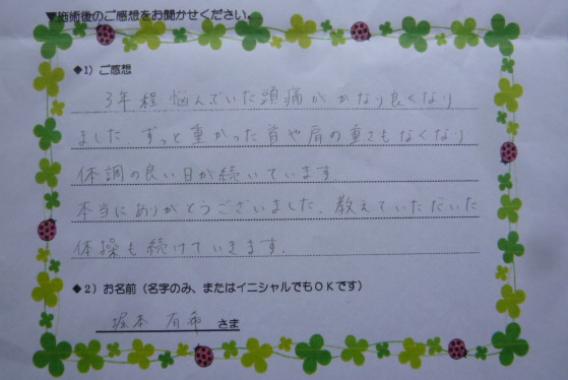 ▼施術後のご感想をお聞かせください。
◆1）ご感想
3年程悩んでいた頭痛がかなり良くなり
ました。ずっと重かった首や肩の重さもなくなり
体調の良い日が続いています
本当にありがとうございました。教えていただいた
体操も続けていきます。
◆2）お名前（名字のみ、またはイニシャルでもＯＫです）
堀本 有希 さま